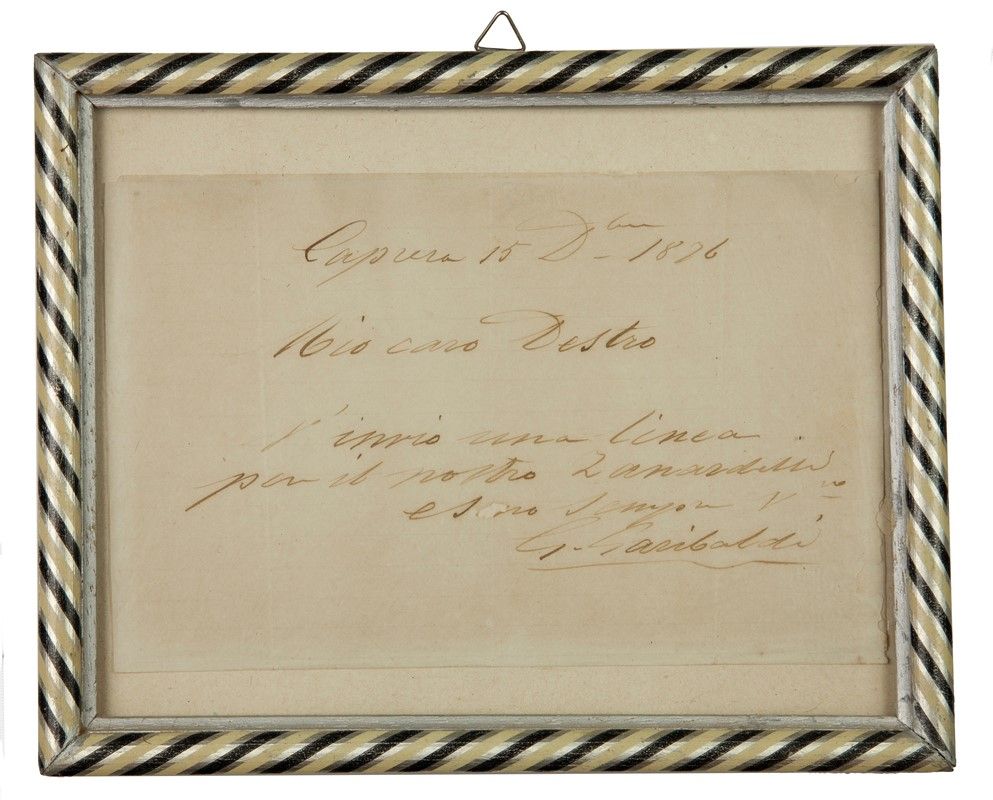 Caprera 15 Dbre 1876
Mio caro Destro
V'invio una linea
per il nostro Zanardelli
e sono sempre Vro
G. Garibaldi